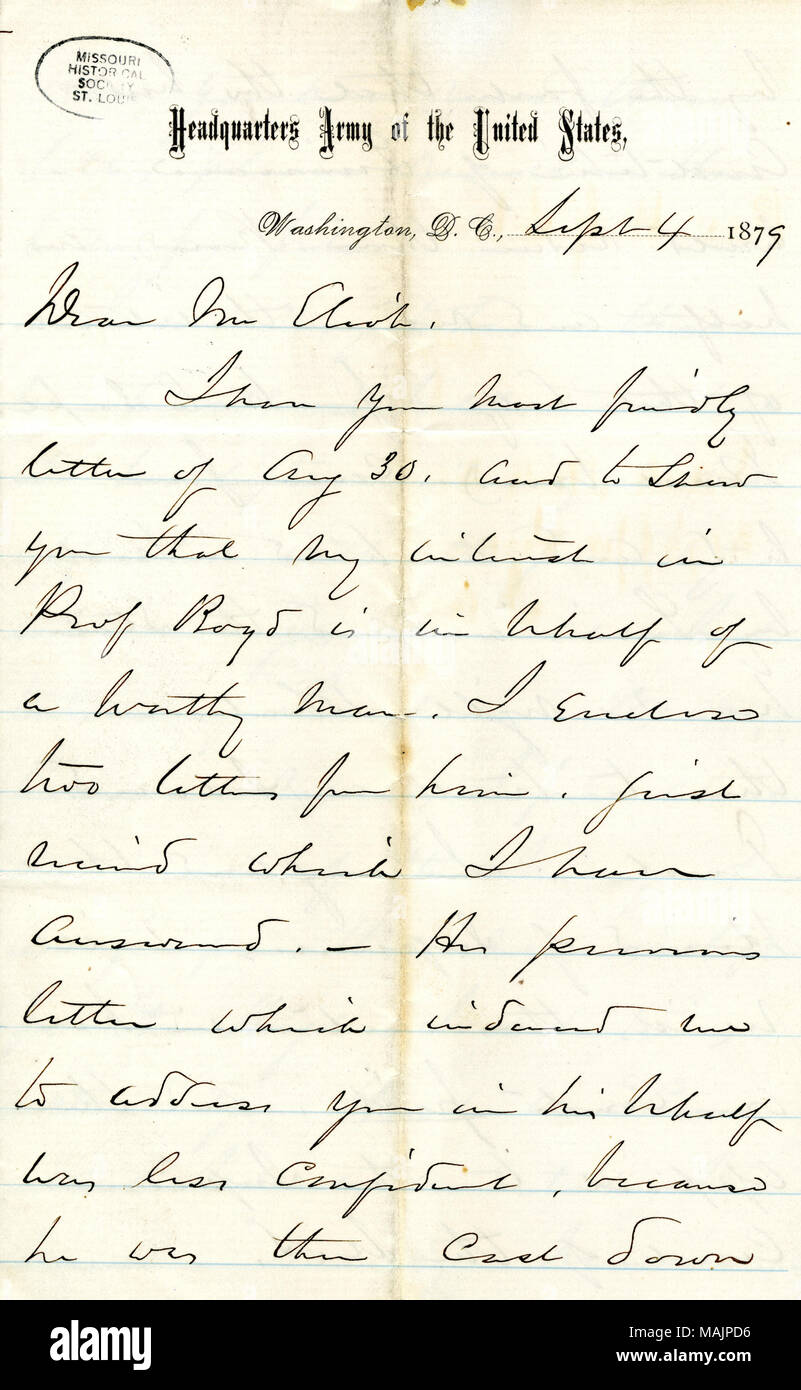 MISSOURI
HISTORICAL
SOCIETY
ST. LOUIS
Headquarters Army of the United States,
Washington, D. C., Sept 4 1879
Dear Mr Eliot,
I have your most friendly
letter of Aug 30, and to show
you that my interest in
Prof Boyd is in behalf of
a worthy man, I Enclose
two letters from him, just
recd which I have
answered. — His previous
letter which induced me
to address you in his behalf
was less confident, because
he was then cast down
alamy
Image ID: MAJPD6
www.alamy.com